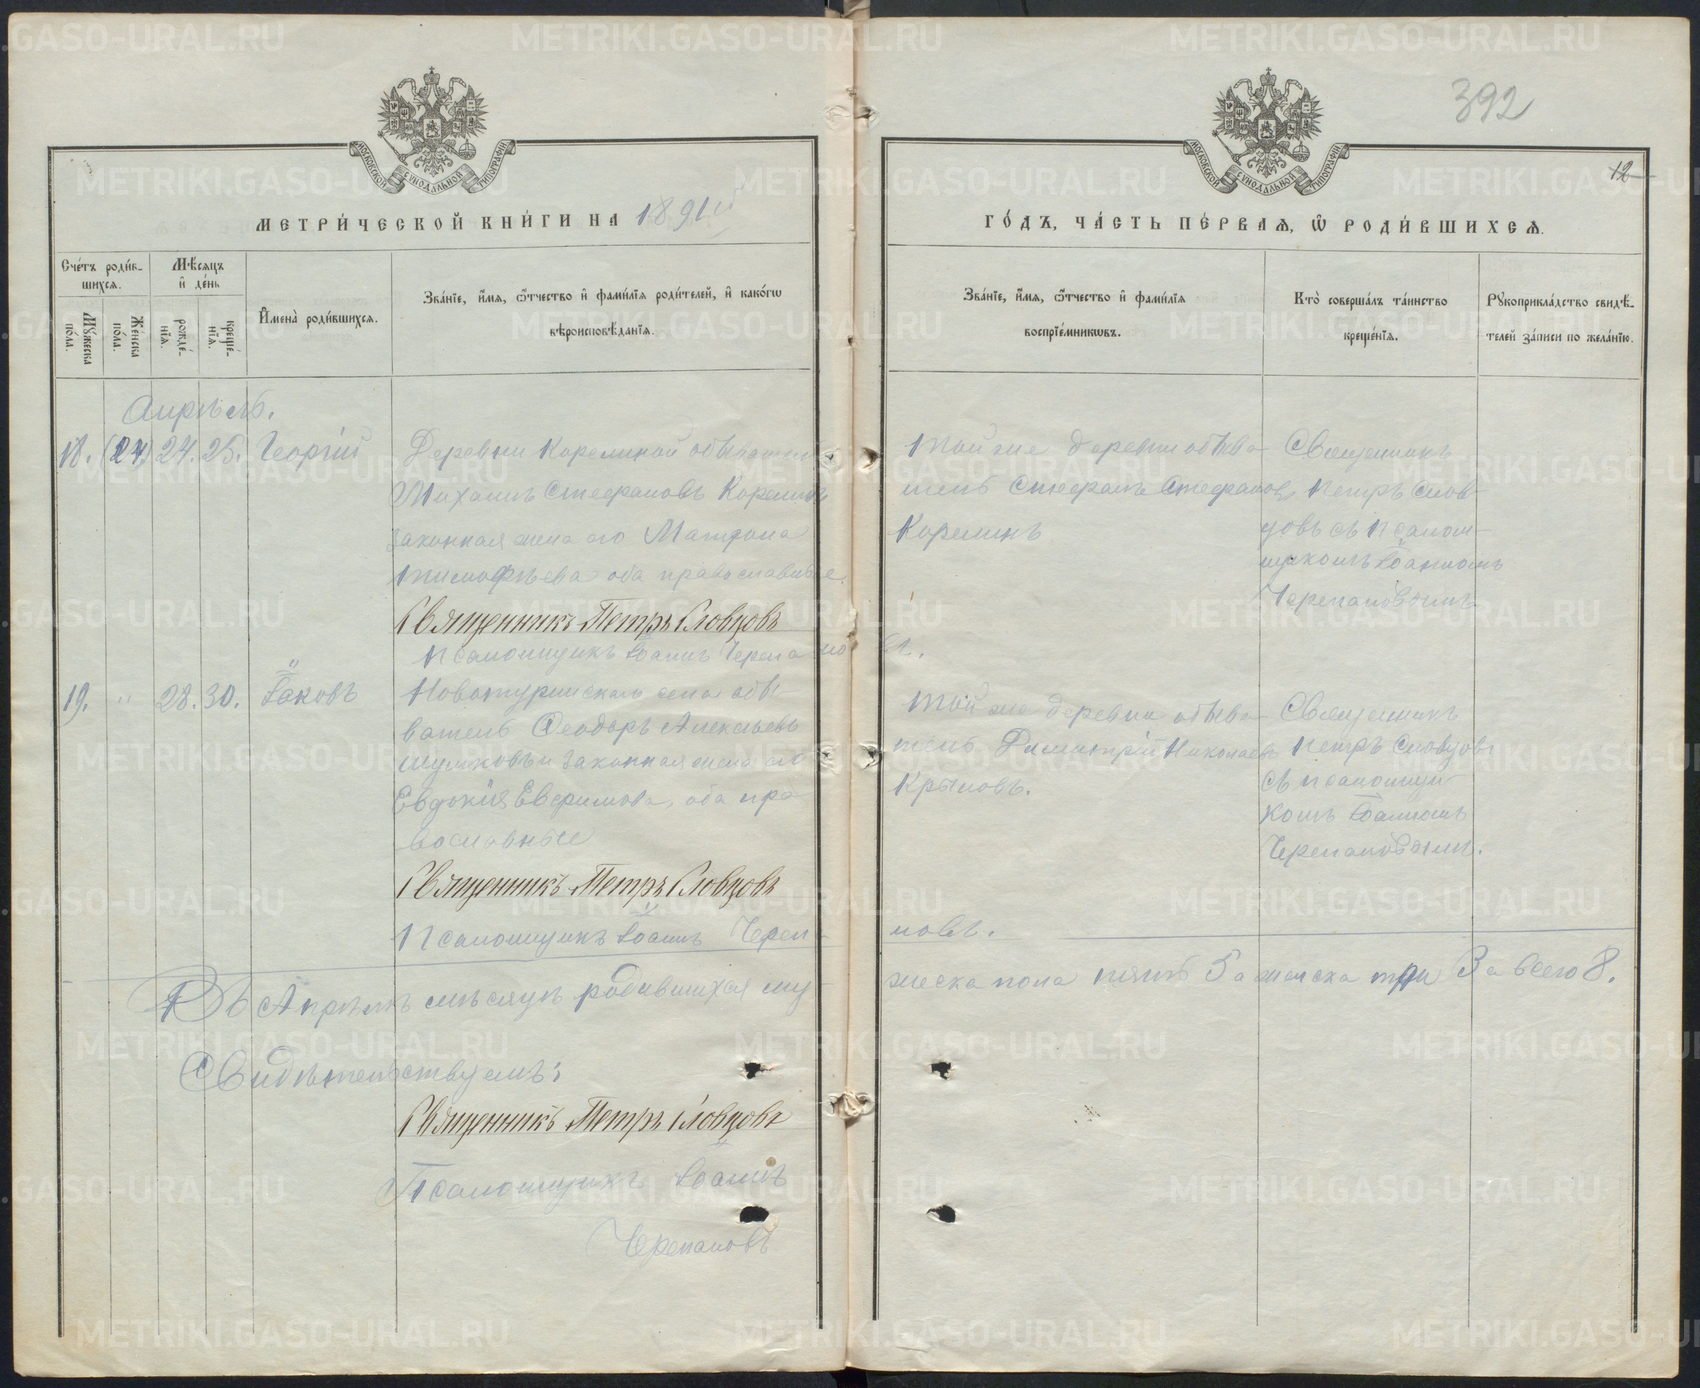 392
12
МОСКОВСКОЙ СѴНОДАЛЬНОЙ ТИПОГРАФІИ
МОСКОВСКОЙ СѴНОДАЛЬНОЙ ТИПОГРАФІИ
МЕТРИ́ЧЕСКОЙ КНИ́ГИ НА 1891й
ГО́ДЪ, ЧА́СТЬ ПЕ́РВАѦ, Ѿ РОДИ́ВШИХСѦ.
Сче́тъ роди́вшихсѧ.
Мѣ́сѧцъ и҆ де́нь
Мꙋ́жеска по́ла.
Же́нска по́ла.
рожде́нїѧ.
креще́нїѧ.
И҆мена̀ роди́вшихсѧ.
Зва́нїе, и҆́мѧ, ѻ҆́тчество и҆ фами́лїѧ роди́телей, и҆ како́гѡ
вѣроисповѣ́данїѧ.
Зва́нїе, и҆́мѧ, ѻ҆́тчество и҆ фами́лїѧ
воспрїе́мникѡвъ.
Кто̀ соверша́лъ та́инство
креще́нїѧ.
Рꙋкоприкла́дство свидѣ́-
телей за́писи по жела́нїю.
Апрѣль.
18. (24) 24. 25. Георгій
Деревни Корелиной обыватель
Михаилъ Стефановъ Корелинъ
законная жена его Матрона
Тимофѣева оба православные.
Священникъ Петръ Словцовъ
Псаломщикъ Іоаннъ Черепановъ.
Той же деревни обыва-
тель Стефанъ Стефановъ
Корелинъ
Священникъ
Петръ Слов-
цовъ съ псалом-
щикомъ Іоанномъ
Черепановымъ
19. " 28. 30. Іаковъ
Новотуринскаго села обы-
ватель Ѳеодоръ Алексѣевъ
и законная жена его
Евдокія Евфимова, оба пра-
вославные
Священникъ Петръ Словцовъ
Псаломщикъ Іоаннъ Череп-
новъ.
Той же деревни обыва-
тель Димитрій Николаевъ
Крыловъ.
Священникъ
Петръ Словцовъ
съ псаломщи-
комъ Іоанномъ
Черепановымъ.
Въ Апрѣлѣ мѣсяцѣ родившихся му-
жеска пола пять 5 а женска три 3 а всего 8.
Свидѣтельствуемъ:
Священникъ Петръ Словцовъ
Псаломщикъ Іоаннъ
Черепановъ
METRIKI.GASO-URAL.RU